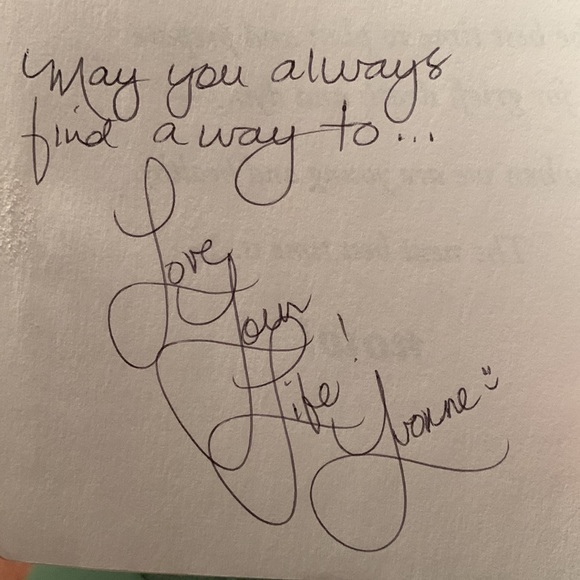 May you always
find a way to...
Love
Your
Life!
Yvonne